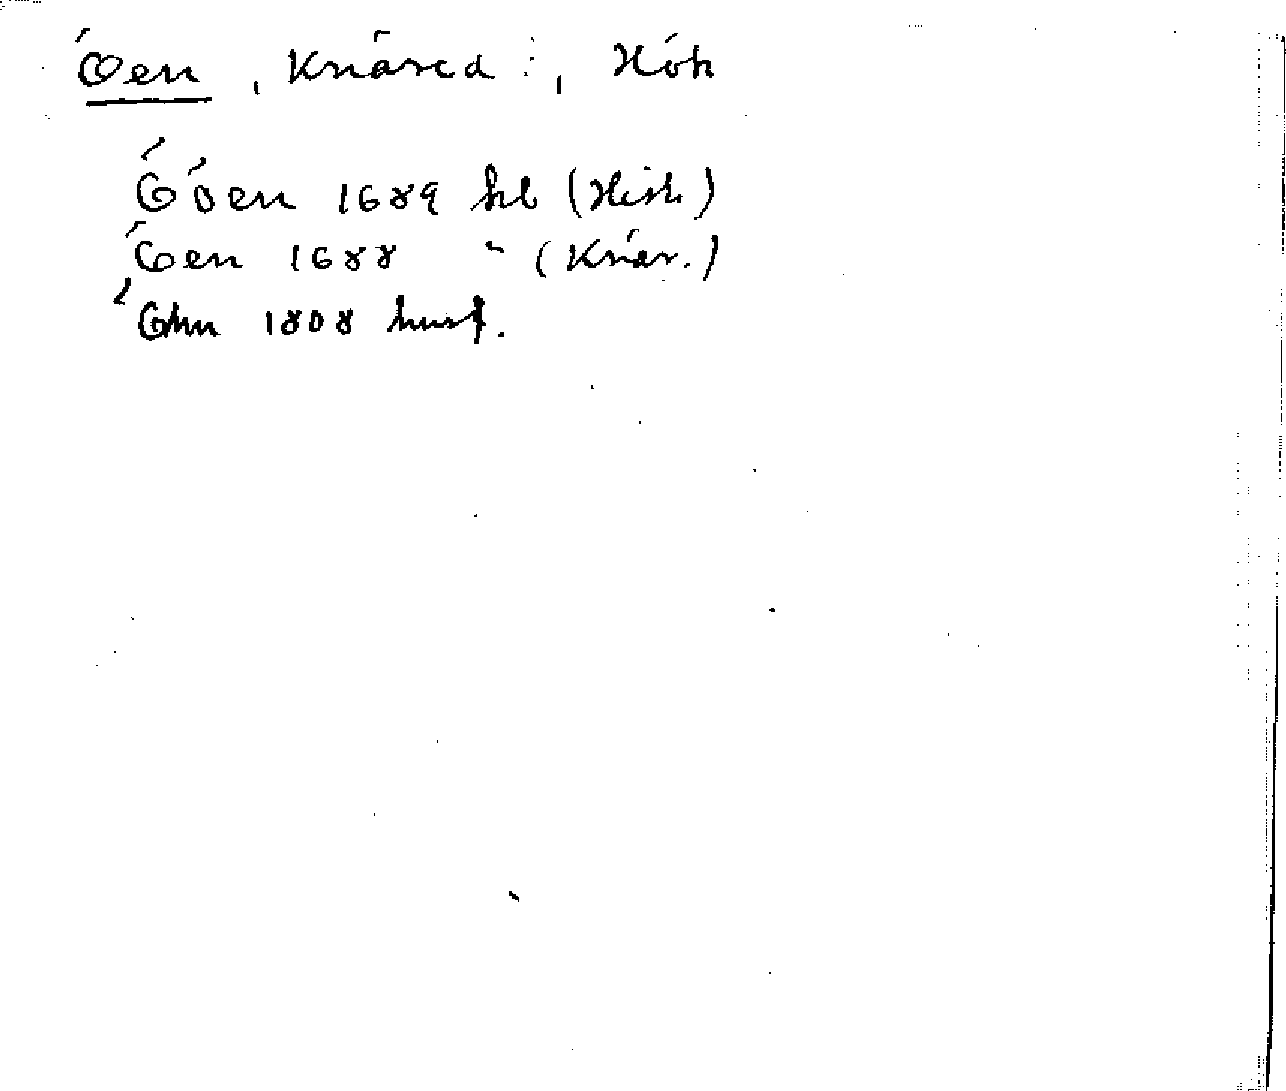 Öen, Knäred :, Hök
Ööen 1689 kb (Hish.)
Öen 1688 " (Knär.)
Öhn 1808 husf.